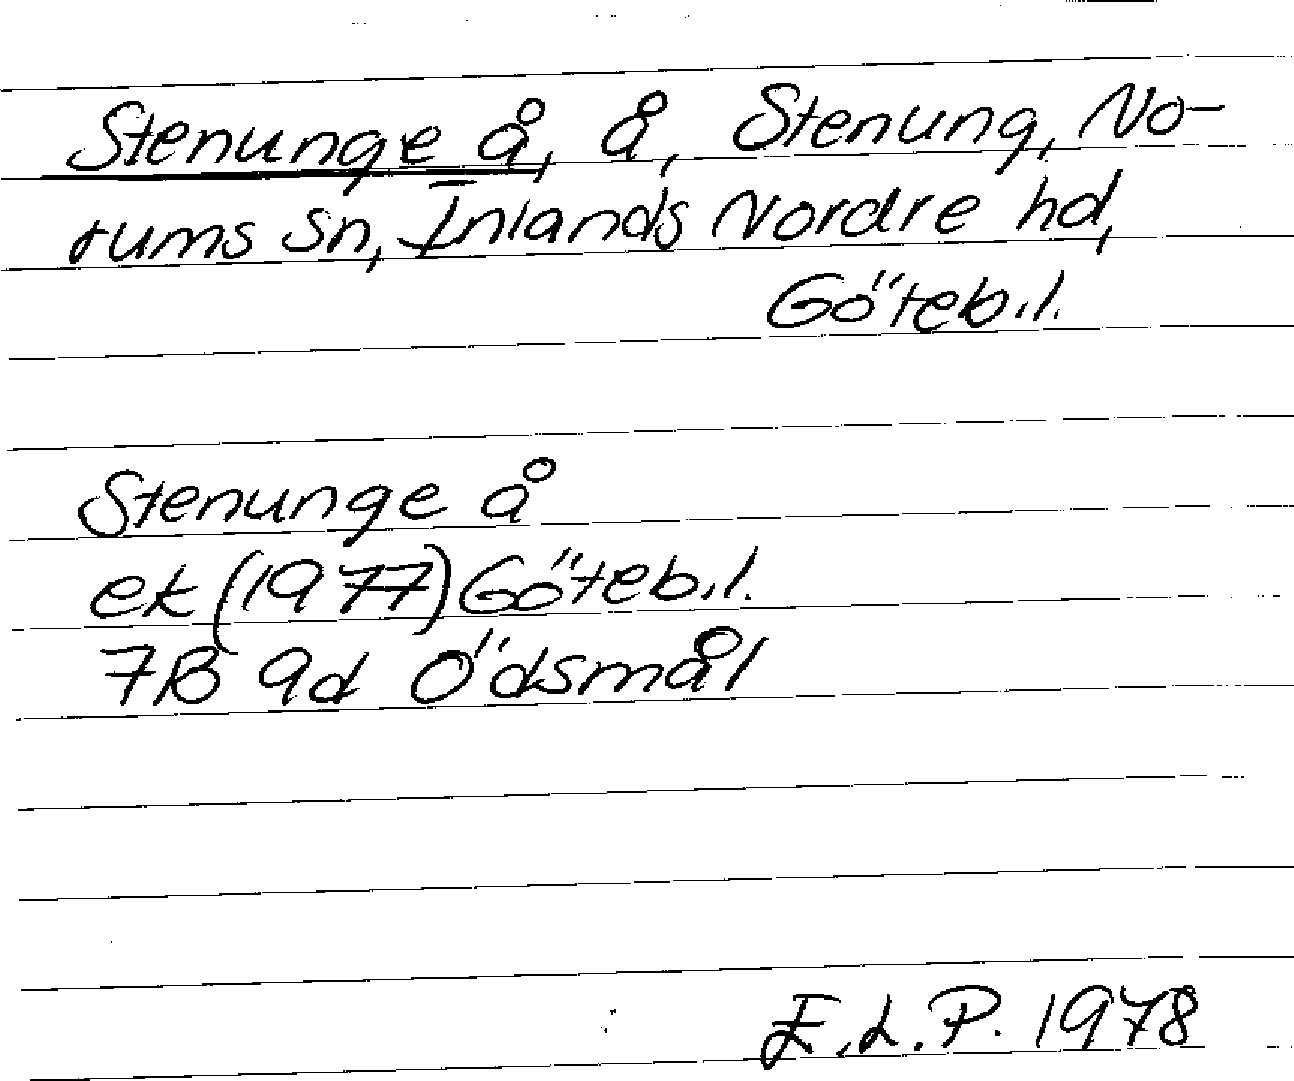 Stenunge å, å, Stenung, No-
rums sn, Inlands Nordre hd,
Göteb.l.
Stenunge å
ek (1977) Göteb.l.
7B 9d Ödsmål
E.L.P. 1978